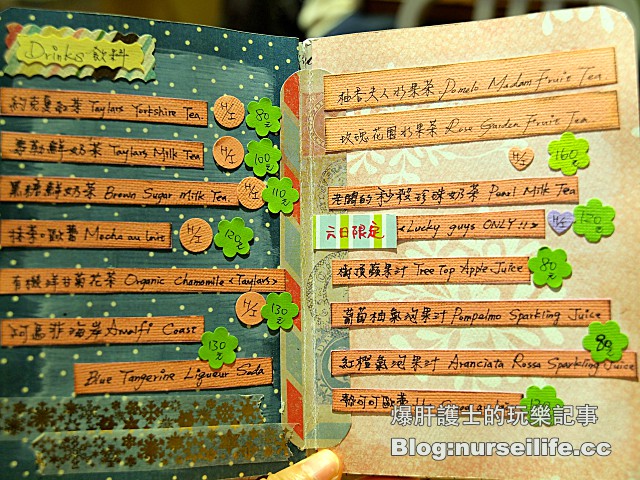 Drinks 飲料
約克夏紅茶 Taylors Yorkshire Tea
H/I
80元
香醇鮮奶茶 Taylors Milk Tea
H/I
100元
黑糖鮮奶茶 Brown Sugar Milk Tea
H/I
110元
抹茶歐蕾 Macha au Lait
H/I
120元
有機洋甘菊花茶 Organic Chamomile <Taylors>
H/I
130元
阿馬非海岸 Amalfi Coast
130元
Blue Tangerine Liqueur Soda
柚香夫人水果茶 Pomelo Madam Fruit Tea
玫瑰花園水果茶 Rose Garden Fruit Tea
H/I
160元
老闆的秘密珍珠奶茶 Pearl Milk Tea
六日限定
<Lucky guys ONLY!!>
H/I
120元
樹頂蘋果汁 Tree Top Apple Juice
80元
葡萄柚氣泡果汁 Pompelmo Sparkling Juice
紅橙氣泡果汁 Aranciata Rossa Sparkling Juice
80元
爆肝護士的玩樂記事
Blog:nurseilife.cc